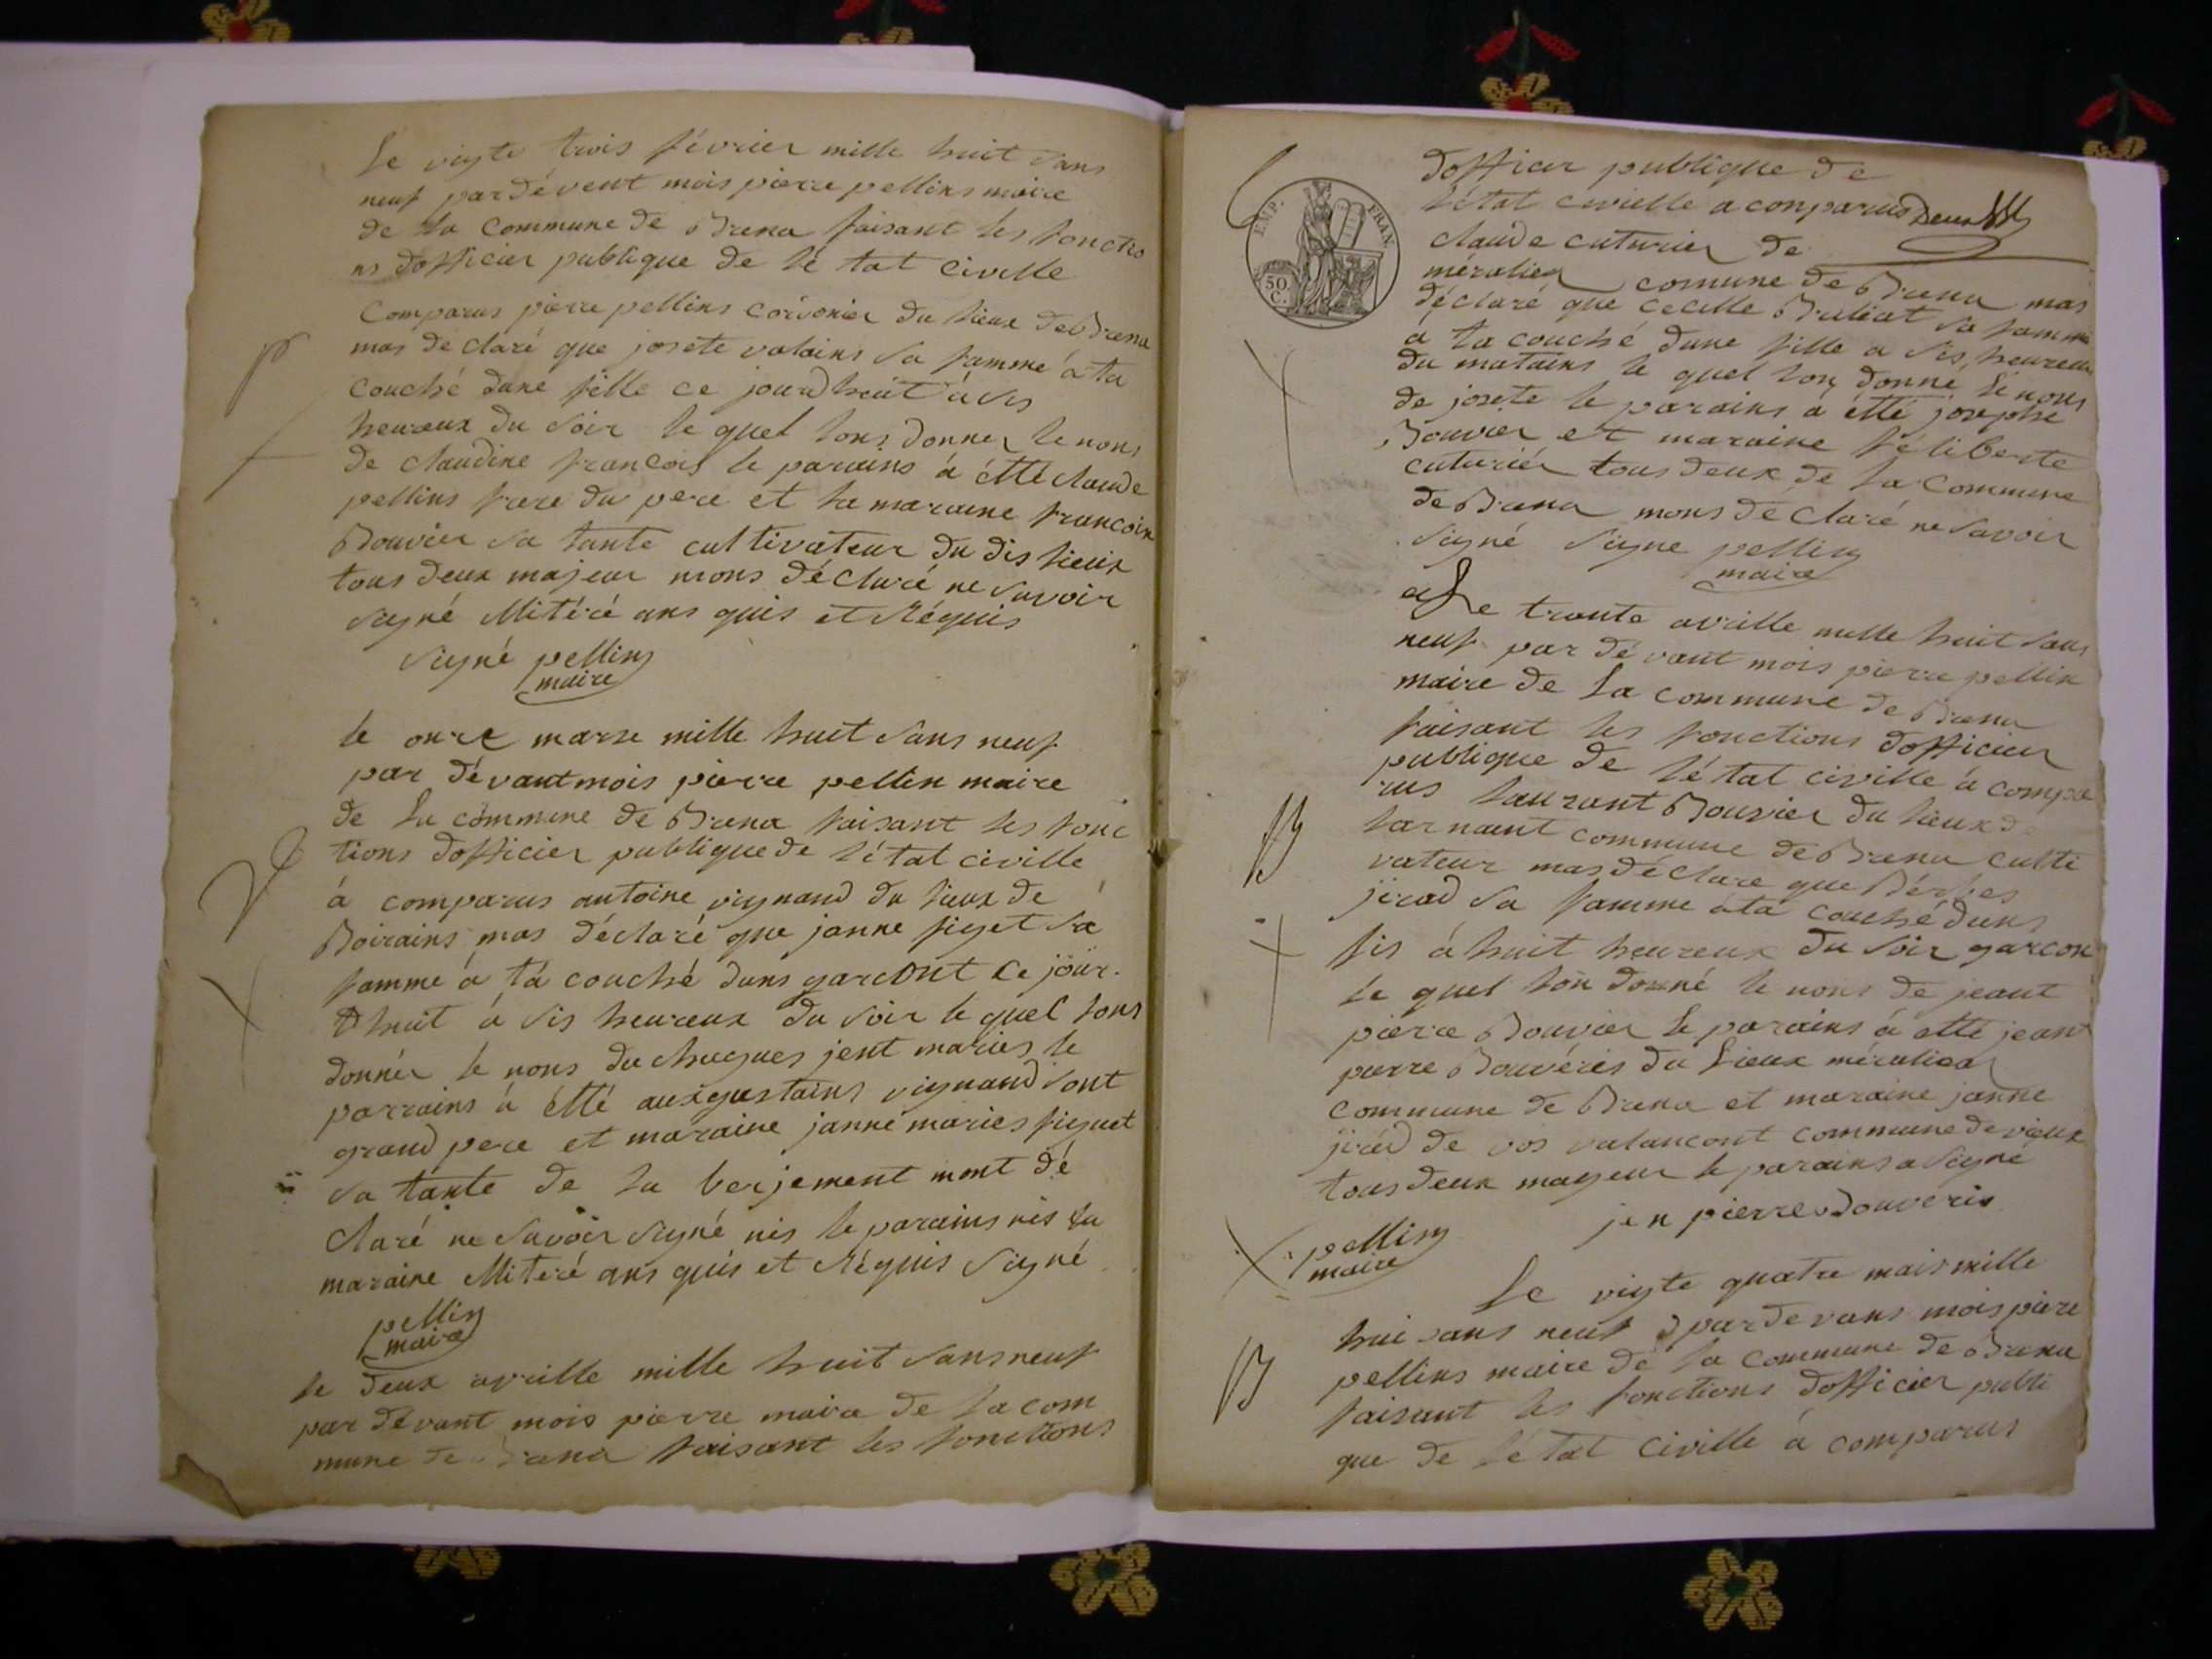 Le vigte trois février mille huit sans
neuf par dévent mois pierre pellins maire
de la commune de Brena faisant les fonctio
ns dofficier publique de lé tat civille
Comparus pierre pellins coironier du lieux de Brena
mas de claré que josete valains sa famme á ta
couché dune fille ce jourdhuit á sis
heureux du soir le quel lons donner le nons
de claudine francois le parains á étté claude
pellins frere du pere et la maraine francoise
Bouvier sa tante cultivateur du dis lieux
tous deux majeur mons déclaré ne savoir
signé Mitéré ans quis et Réquis
signé pellin
maire
le onze marse mille huit sans neuf
par dévant mois pierre pellin maire
de la commune de Brena faisant les fonc
tions dofficier publique de l'état civille
á comparus antoine vignand du lieux de
Boirains mas déclaré que janne figet sa
famme á tá couché duns garcont ce jour
dhuit á sis heureux du soir le quel lons
donnér le nons du chugues jent maries le
parrains á étté auxgustains vignand sont
grand pere et maraine janne maries figuet
sa tante de la berjement mont dé
claré ne savoir signé nis le parains nis la
maraine Mitéré ans quis et Réquis signé
pellin
maire
le deux avrille mille huit sans neuf
par dévant mois pierre maire de la com
mune de Brena faisant les fonctions
EMP. FRAN.
50.
C.
dofficier publique de
l'état civielle a comparus Deux
claude cuturier de
méralier comune de Brena mas
déclaré que cecille Buliat sa famme
á ta couché dune fille a sis heureux
du matains le quel lon donné le nons
de josete le parains á étté josephe
Bouvier et maraine féliberte
cuturiér tous deux de la commune
de Brena mons déclaré ne savoir
signé signe pellin
maire
Le trante avrille mille huit sans
neuf par dé vant mois pierre pellin
maire de la commune de Brena
faisant les fonctions dofficier
publique de l'é tat civille á compa
rus laurant Bouvier du lieux de
larnant commune de Brena culti
vateur mas déclare que
jirad sa famme á ta couché duns
fis á huit heureux du soir garcon
le quel lon donné le nons de jeant
pierre Bouvier le parains á étté jeant
pierre Bouvéris du lieux méralier
commune de Brena et maraine janne
jirad de vos valancont commune de vieux
tous deux mageur le parains a signé
jen pierre Bouveris
pellin
maire
Le vigte quatre mais mille
hui sans neuf par devans mois piere
pellins maire de la commune de Brena
faisant les fonctions dofficier publi
que de l'é tat civille á comparus